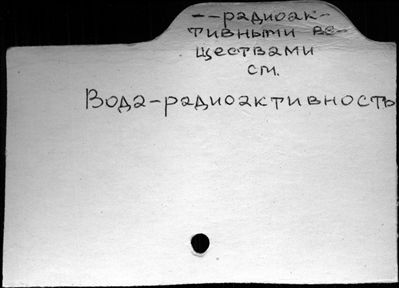 --радиоак-
тивными ве-
ществами
см.
Вода-радиоактивность